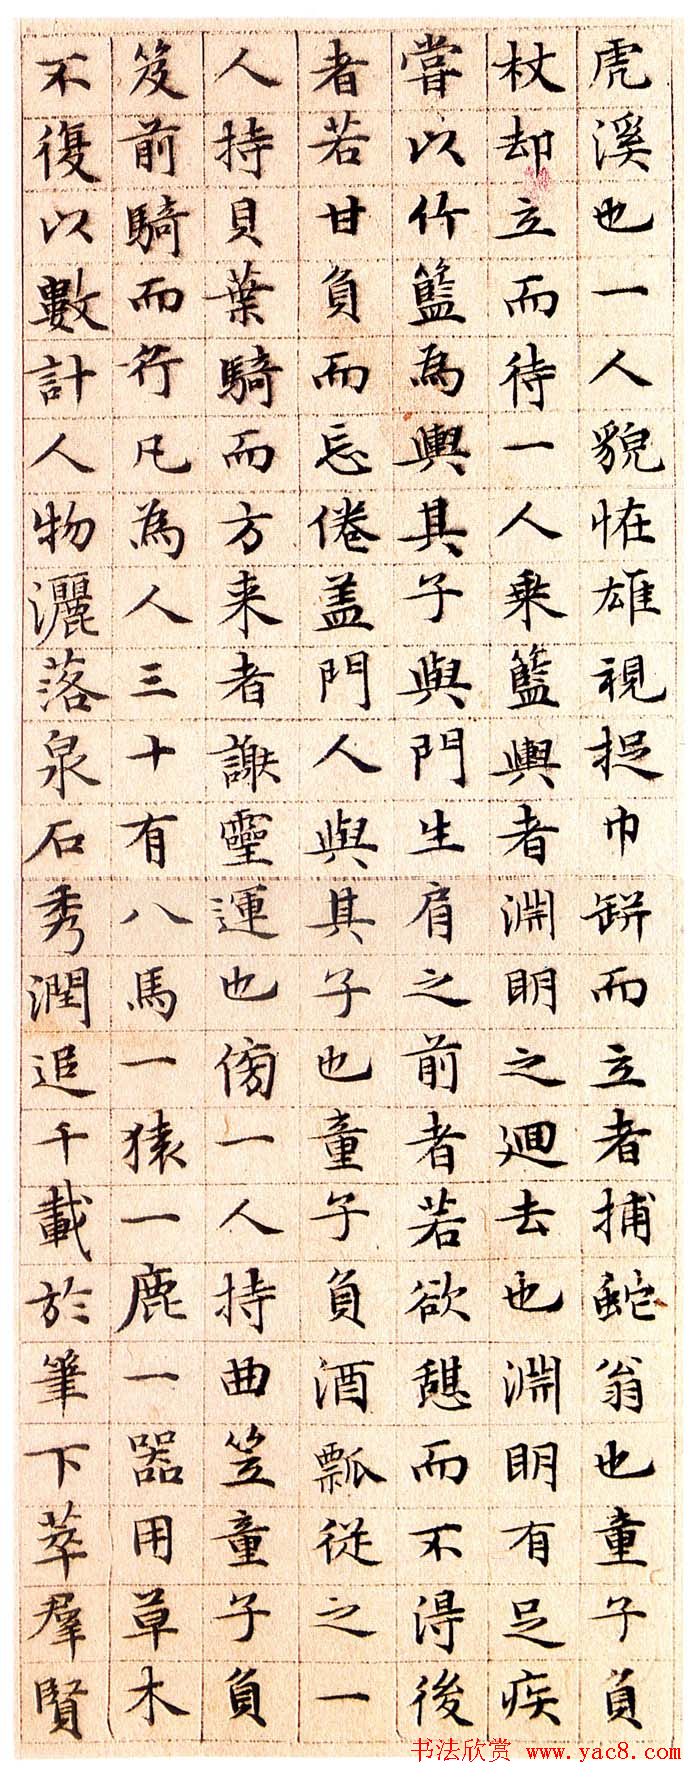 虎溪也一人貌恠雄視捉巾缾而立者捕蛇翁也童子負
杖却立而待一人乘籃輿者淵明之廻去也淵明有足疾
嘗以竹籃為輿其子與門生肩之前者若欲憇而不得後
者若甘負而忘倦盖門人與其子也童子負酒瓢從之一
人持貝葉騎而方来者謝靈運也傍一人持曲笠童子負
笈前騎而行凡為人三十有八馬一猿一鹿一器用草木
不復以數計人物灑落泉石秀潤追千載於筆下萃羣賢
书法欣赏 www.yac8.com